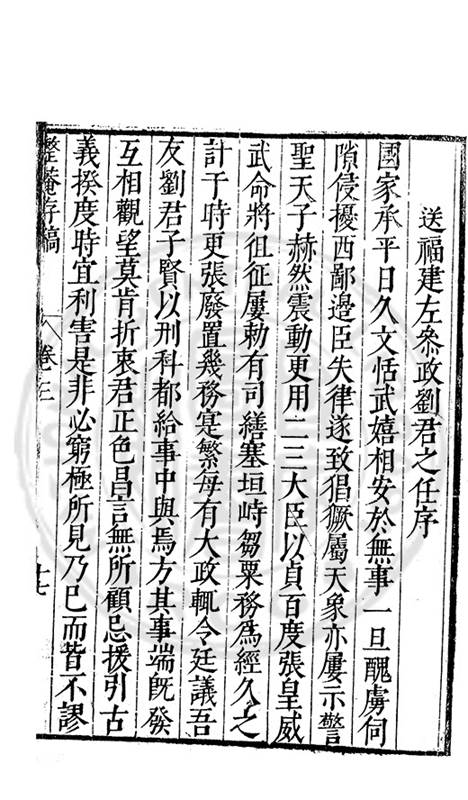 送福建左叅政劉君之任序
國家承平日久文恬武嬉相安於無事一旦醜虜伺
隙侵擾西鄙邊臣失律遂致猖獗屬天象亦屢示警
聖天子赫然震動更用二三大臣以貞百度張皇威
武命將徂征屢勅有司繕塞垣峙芻粟務為經久之
計于時更張廢置幾務寔繁每有大政輒令廷議吾
友劉君子賢以刑科都給事中與焉方其事端旣發
互相觀望莫肯折衷君正色昌言無所顧忌援引古
義揆度時宜利害是非必窮極所見乃已而皆不謬
整菴存稿
卷三
十七